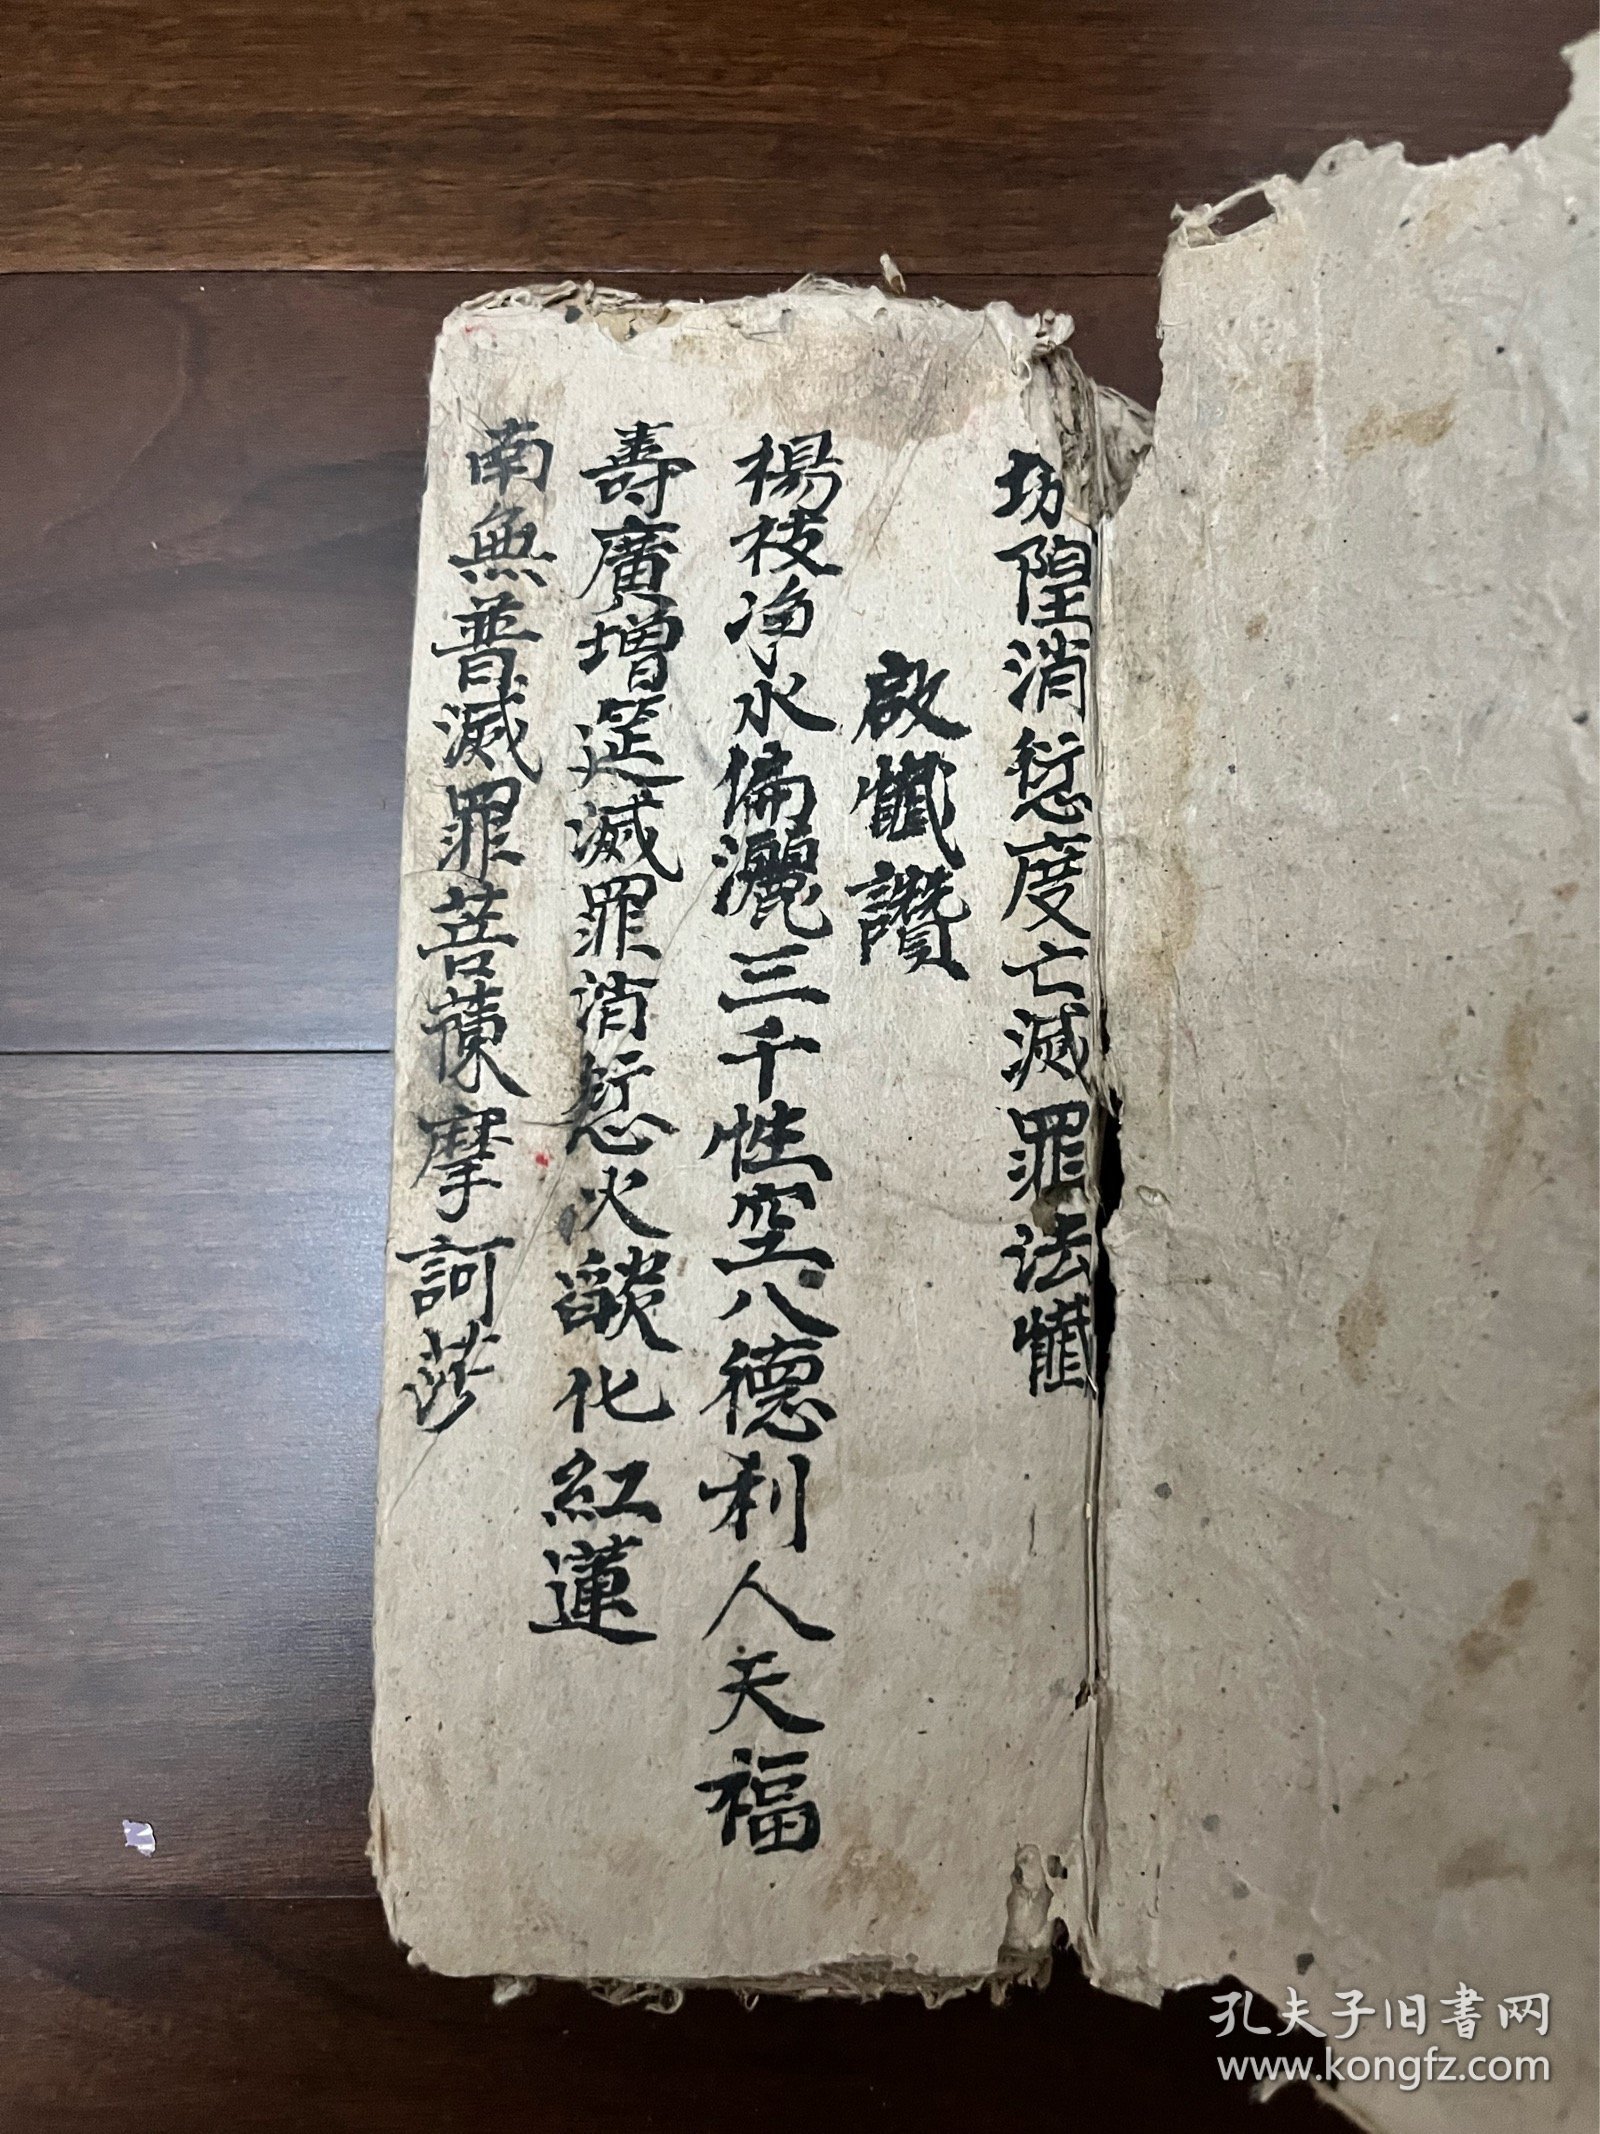 坊隍消愆度亡滅罪法懺
啟懺讚
楊枝净水徧灑三千性空八德利人天福
壽廣增延滅罪消愆火燄化紅蓮
南無普滅罪菩薩摩訶莎
孔夫子旧书网
www.kongfz.com